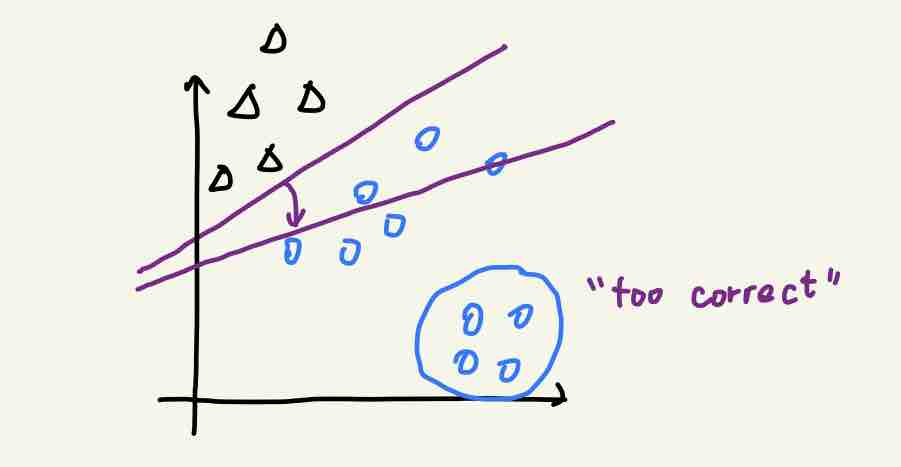 "too correct"